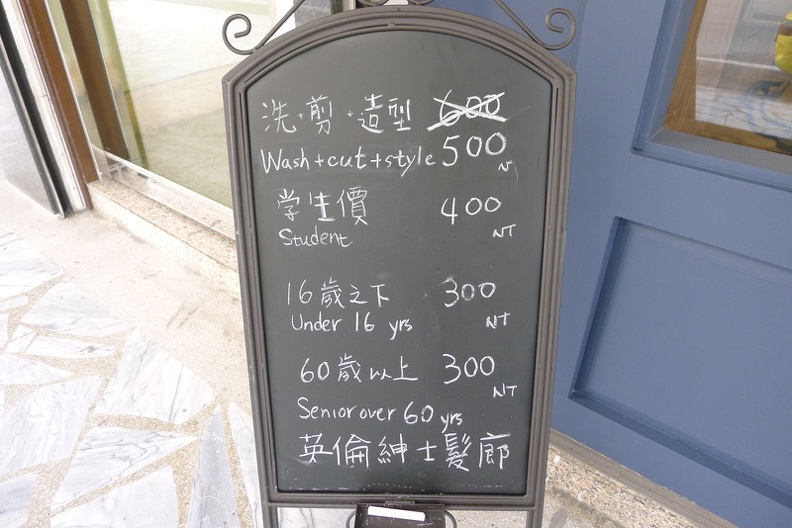 洗+剪+造型 600
Wash+cut+style 500
N
学生價 400
Student NT
16歲之下 300
Under 16 yrs NT
60歲以上 300
NT
Senior over 60 yrs
英倫紳士髮廊